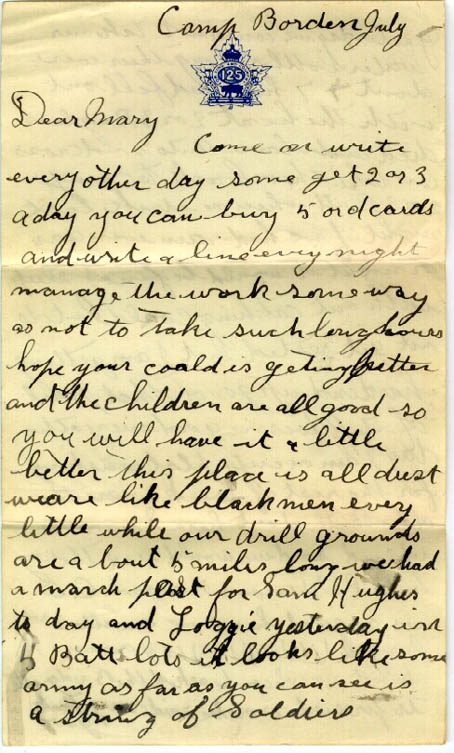 Camp Borden July
125
Dear Mary
Come on write
every other day some get 2 or 3
a day you can buy 5 or d cards
and write a line evry night
manage the work some way
so not to take such long hours
hope your coald is geting better
and the children are all good so
you will have it a little
better this place is all dust
we are like black men every
little while our drill grounds
are a bout 5 miles long we had
a march past for Sam Hughes
to day and Loggie yesterday in
4 Batt lots it looks like some
army as far as you can see is
a string of Soldiers